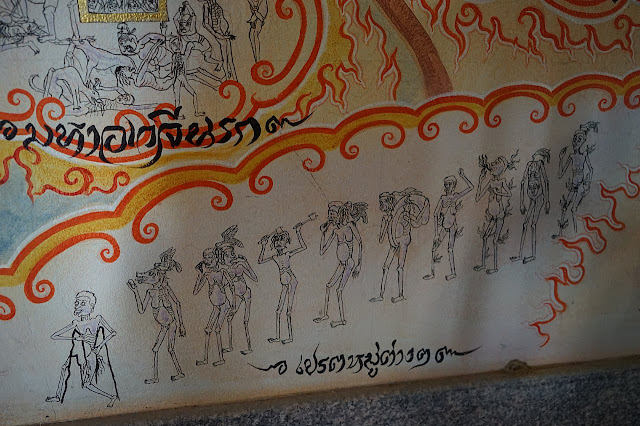 มหาอเวจีนรก
เปรตหมู่ต่างๆ